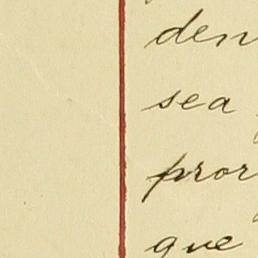 den
sea
pror
que